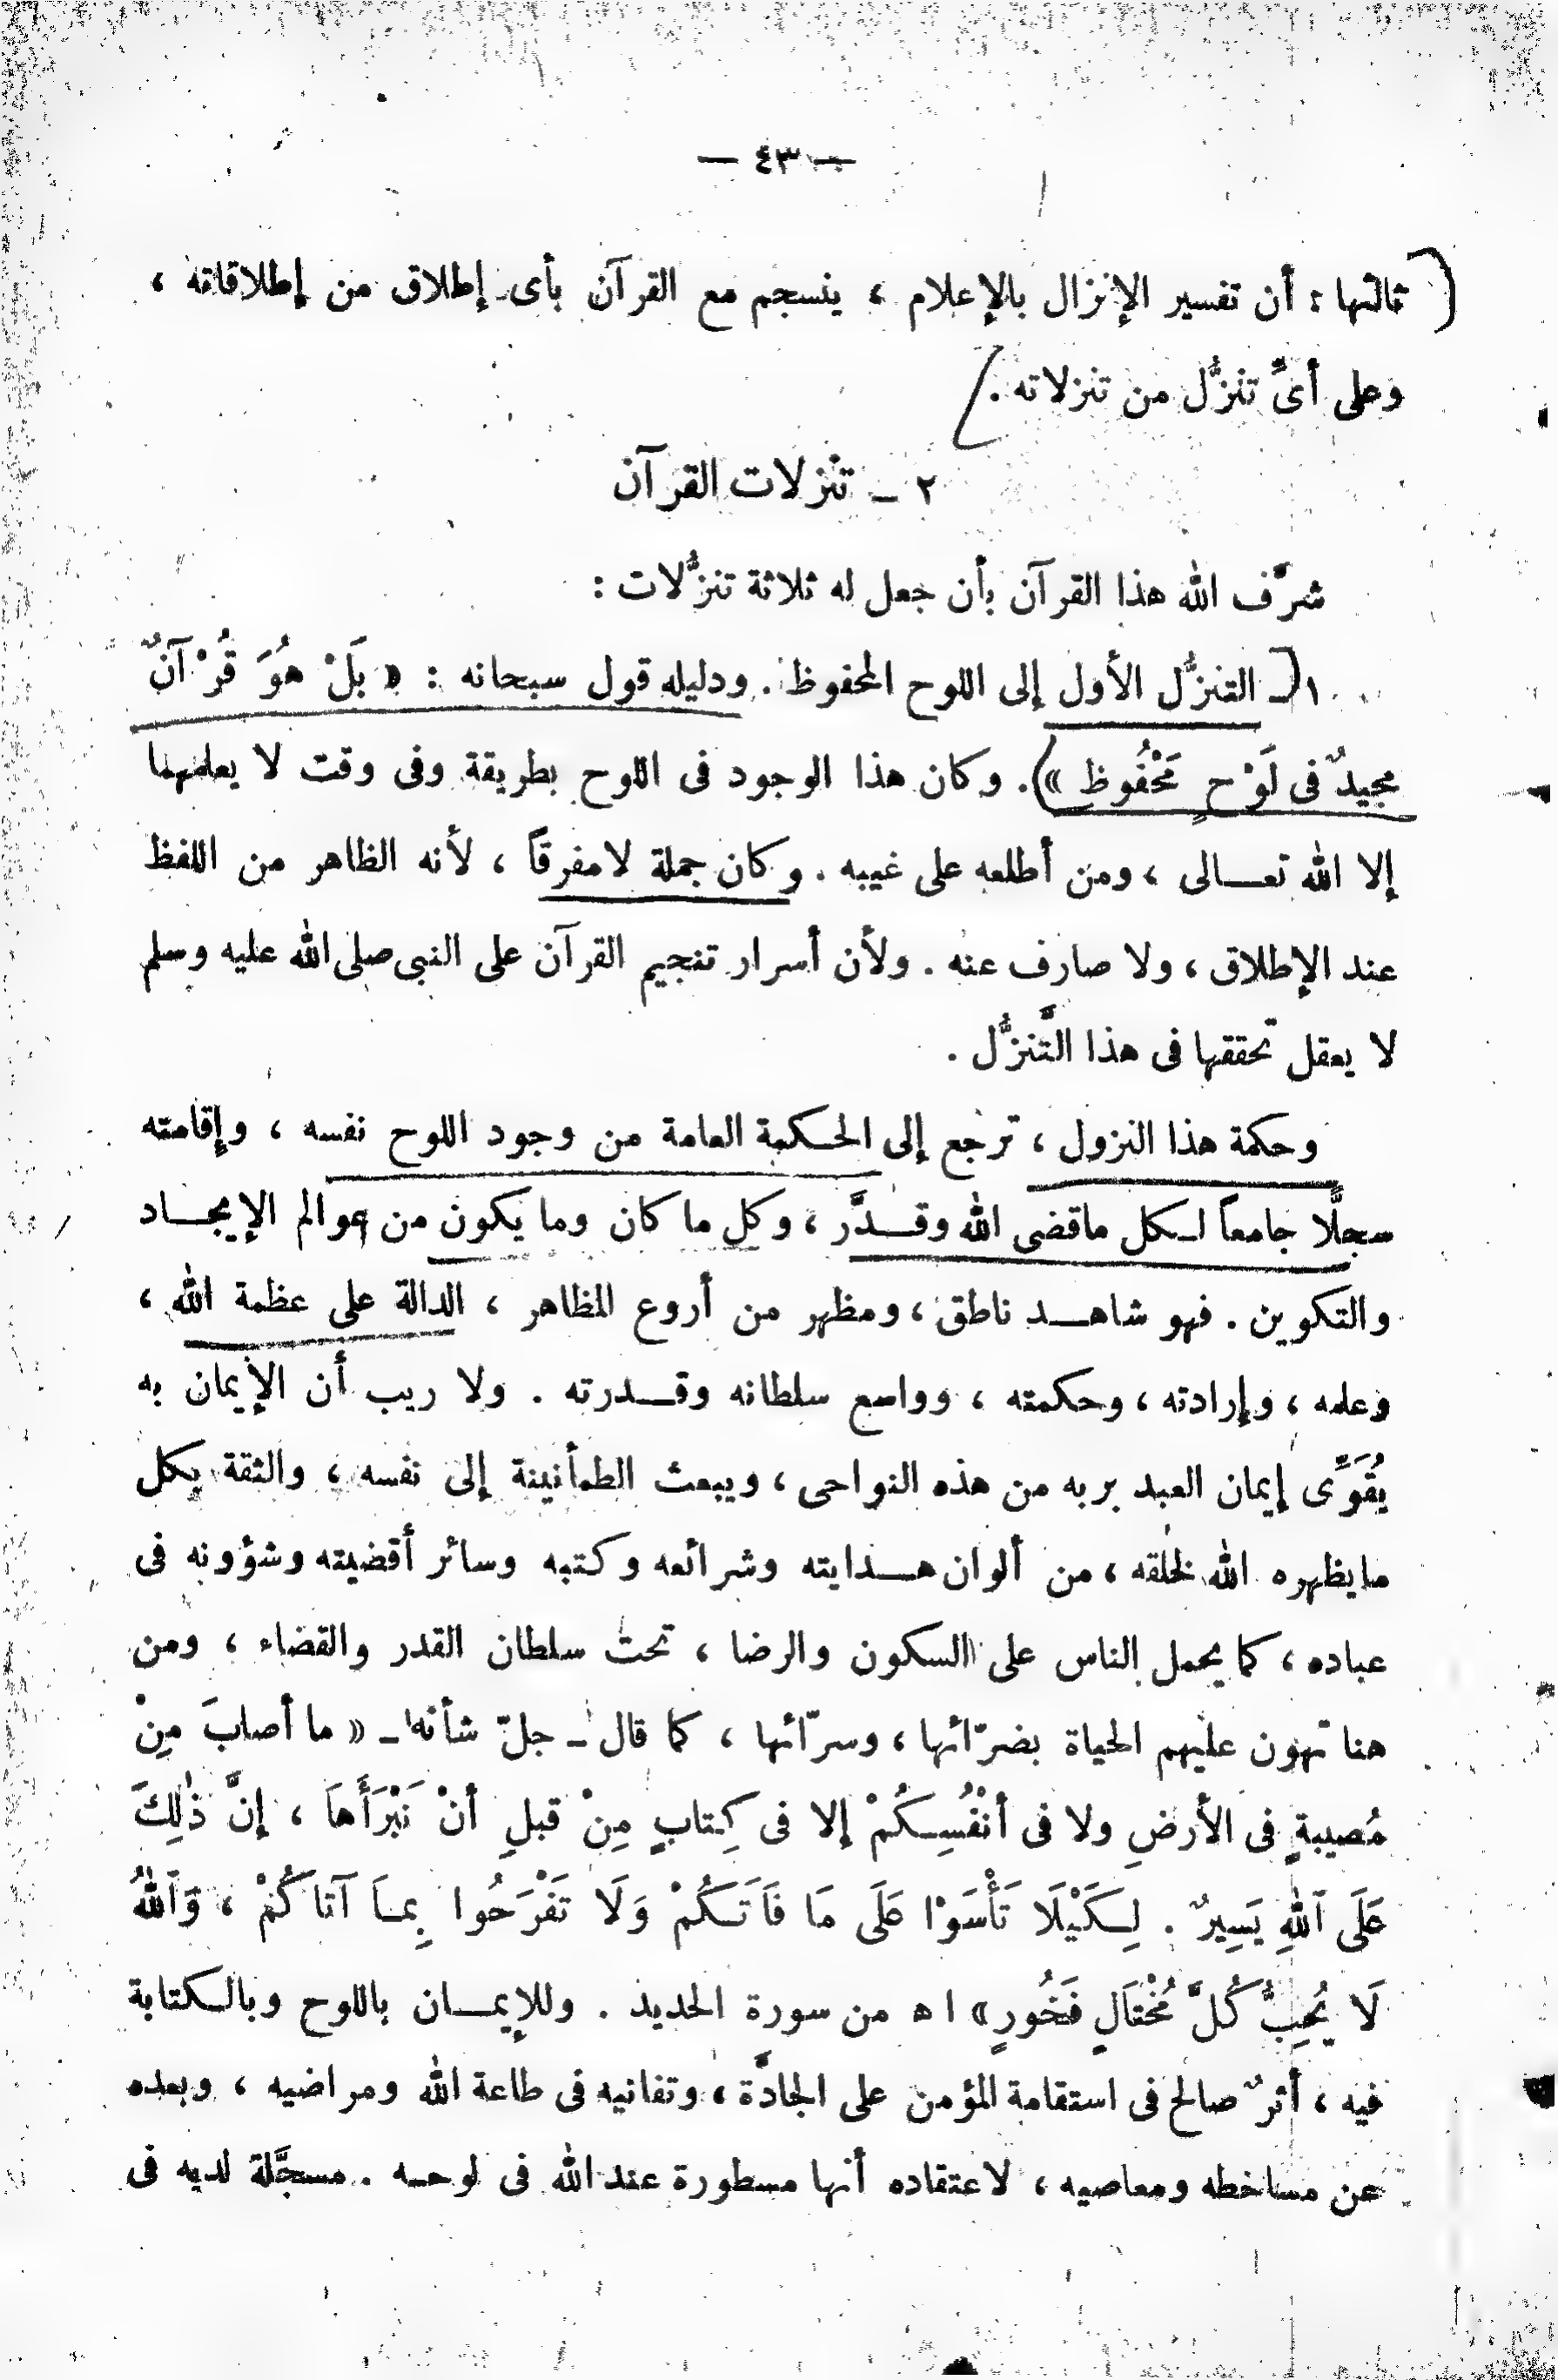 — ٤٣ —
ثالثها : أن تفسير الإنزال بالإعلام ، ينسجم مع القرآن بأى إطلاق من إطلاقاته ،
وعلى أىِّ تنزُّل من تنزلاته .
٢ — تنزلات القرآن
شرَّف الله هذا القرآن بأن جعل له ثلاثة تنزُّلات :
١ — التنزُّل الأول إلى اللوح المحفوظ . ودليله قول سبحانه : « بَلْ هُوَ قُرْآنٌ
مجيدٌ فى لَوْحٍ مَحْفُوظٍ » . وكان هذا الوجود فى اللوح بطريقة وفى وقت لا يعلمهما
إلا الله تعـالى ، ومن أطلعه على غيبه . وكان جملة لامفرقاً ، لأنه الظاهر من اللفظ
عند الإطلاق ، ولا صارف عنه . ولأن أسرار تنجيم القرآن على النبى صلى الله عليه وسلم
لا يعقل تحققها فى هذا التَّنزُّل .
وحكمة هذا النزول ، ترجع إلى الحـكمة العامة من وجود اللوح نفسه ، وإقامته
سجلًّا جامعاً لـكل ماقضى الله وقـدَّر ، وكل ما كان وما يكون من عوالم الإيجـاد
والتكوين . فهو شاهـد ناطق ، ومظهر من أروع المظاهر ، الدالة على عظمة الله ،
وعلمه ، وإرادته ، وحكمته ، وواسع سلطانه وقـدرته . ولا ريب أن الإيمان به
يُقَوِّى إيمان العبد بربه من هذه النواحى ، ويبعث الطمأنينة إلى نفسه ، والثقة بكل
مايظهره الله لخلقه ، من ألوان هـدايته وشرائعه وكتبه وسائر أقضيته وشؤونه فى
عباده ، كما يحمل الناس على السكون والرضا ، تحت سلطان القدر والقضاء ، ومن
هنا تهون عليهم الحياة بضرّائها ، وسرّائها ، كما قال ـ جلّ شأنه ـ « ما أصابَ مِنْ
مُصيبةٍ فى الأرضِ ولا فى أنْفُسِـكُمْ إلا فى كِتابٍ مِنْ قبلِ أنْ نَبْرَأَهَا ، إنَّ ذٰلِكَ
عَلَى ٱللهِ يَسِيرٌ . لِـكَيْلَا تَأْسَوْا عَلَى مَا فَاتَـكُمْ وَلَا تَفْرَحُوا بِمـاَ آتاكُمْ ، وَٱللهُ
لَا يُحِبُّ كُلَّ مُخْتَالٍ فَخُورٍ » ا ه من سورة الحديد . وللإيمـان باللوح وبالـكتابة
فيه ، أثرٌ صالح فى استقامة المؤمن على الجادَّة ، وتفانيه فى طاعة الله ومراضيه ، وبعده
عن مساخطه ومعاصيه ، لاعتقاده أنها مسطورة عند الله فى لوحـه . مسجَّلة لديه فى